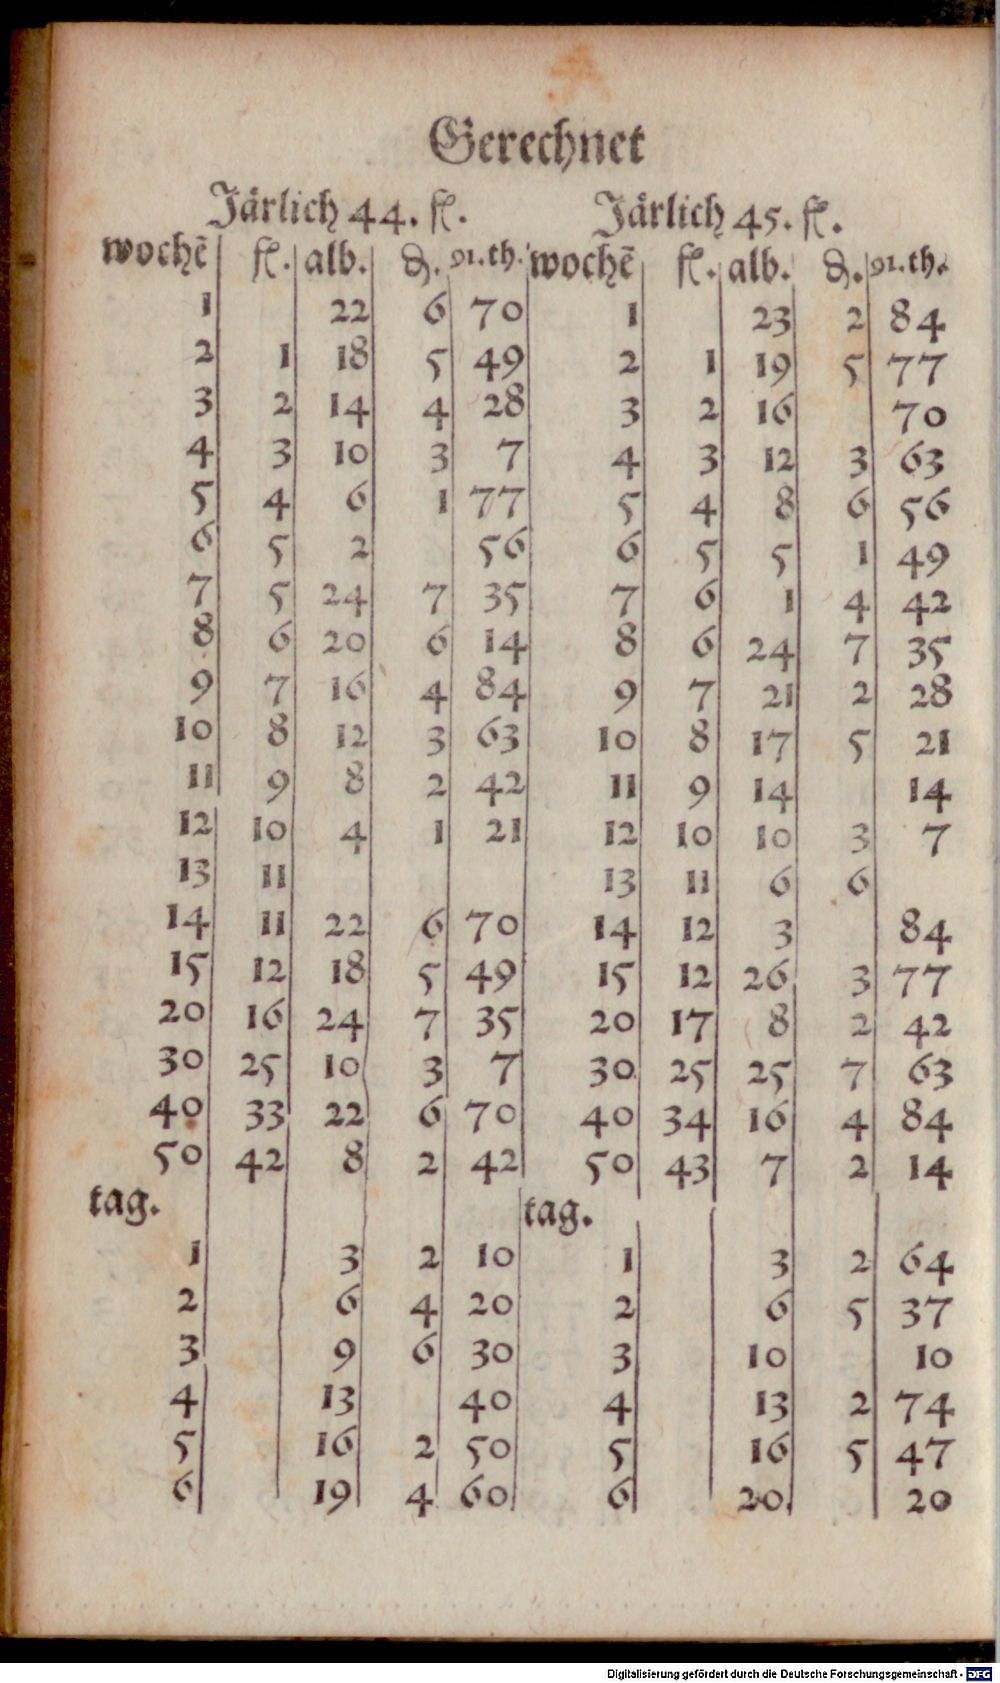 Gerechnet
Järlich 44. fl. Järlich 45. fl.
wochē fl. alb. ₰. 91.th. wochē fl. alb. ₰. 91.th.
1 22 6 70 1 23 2 84
2 1 18 5 49 2 1 19 5 77
3 2 14 4 28 3 2 16 70
4 3 10 3 7 4 3 12 3 63
5 4 6 1 77 5 4 8 6 56
6 5 2 56 6 5 5 1 49
7 5 24 7 35 7 6 1 4 42
8 6 20 6 14 8 6 24 7 35
9 7 16 4 84 9 7 21 2 28
10 8 12 3 63 10 8 17 5 21
11 9 8 2 42 11 9 14 14
12 10 4 1 21 12 10 10 3 7
13 11 13 11 6 6
14 11 22 6 70 14 12 3 84
15 12 18 5 49 15 12 26 3 77
20 16 24 7 35 20 17 8 2 42
30 25 10 3 7 30 25 25 7 63
40 33 22 6 70 40 34 16 4 84
50 42 8 2 42 50 43 7 2 14
tag. tag.
1 3 2 10 1 3 2 64
2 6 4 20 2 6 5 37
3 9 6 30 3 10 10
4 13 40 4 13 2 74
5 16 2 50 5 16 5 47
6 19 4 60 6 20 20
Digitalisierung gefördert durch die Deutsche Forschungsgemeinschaft - DFG